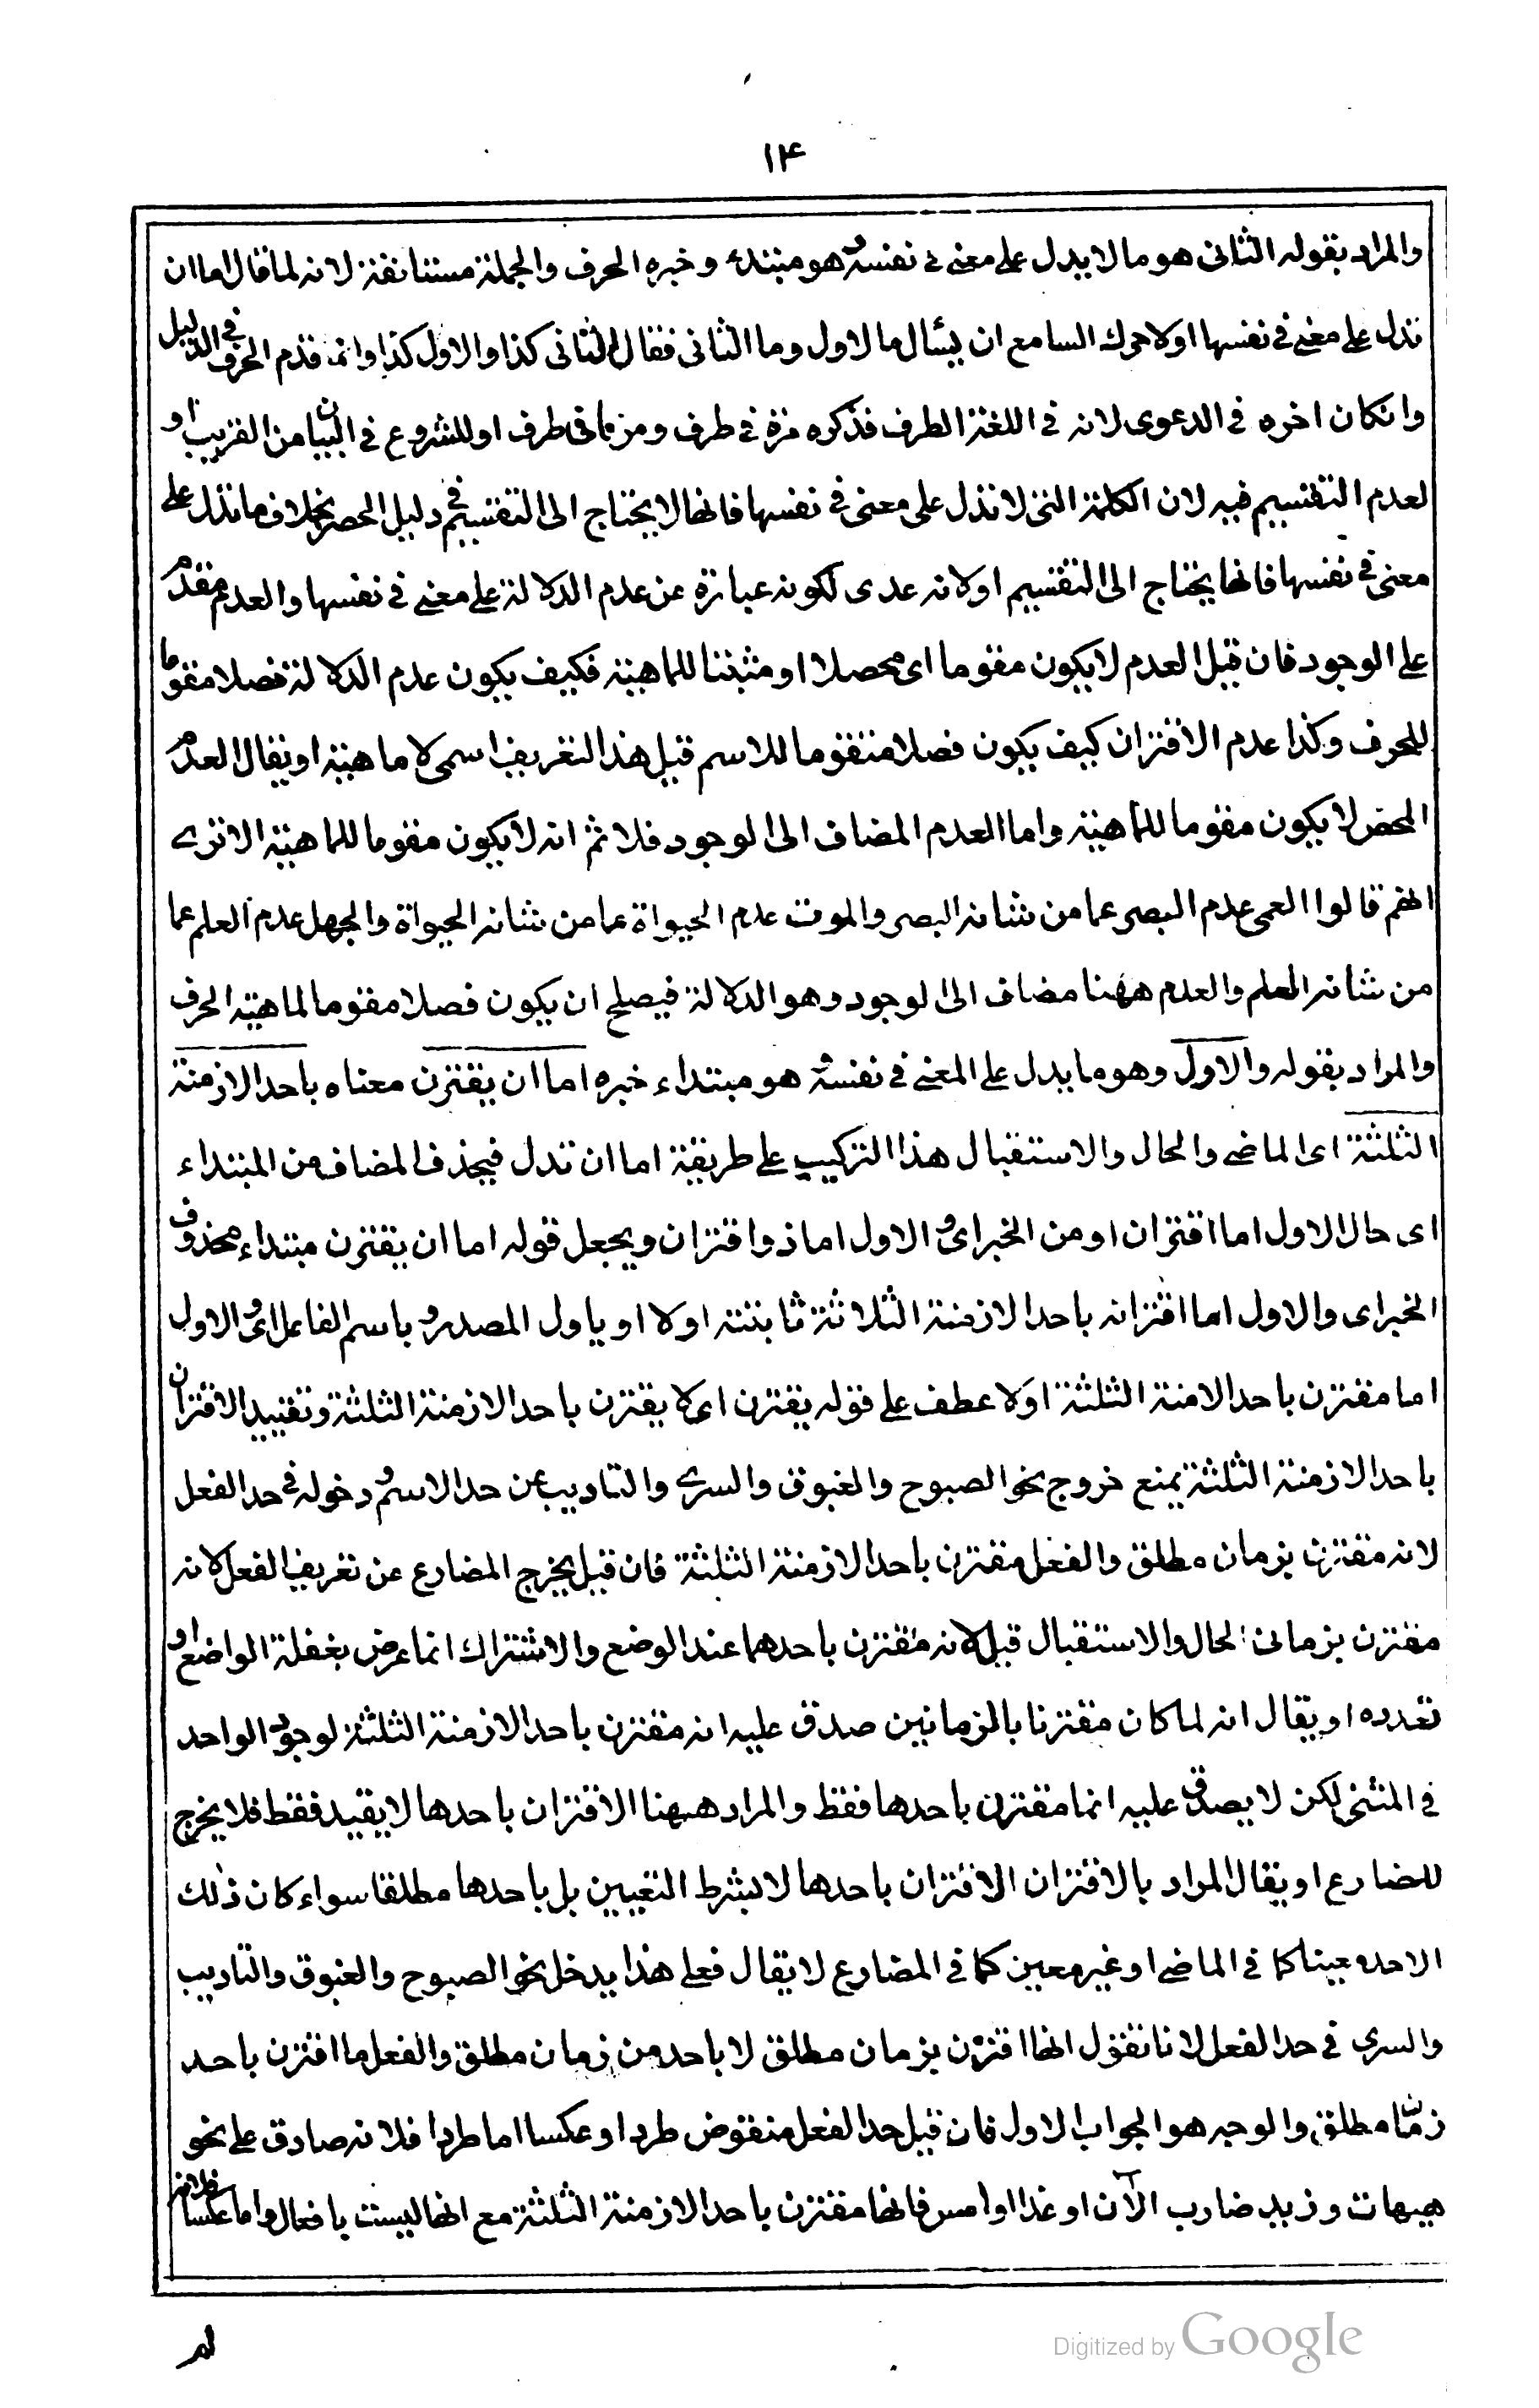 ۱۴
والمراد بقوله الثانى هو ما لا يدل على معنى فى نفسه و هو مبتدء وخبره الحرف والجملة مستانفة لانه لما قال اما ان
تدل على معنى فى نفسها اولا حرك السامع ان يسأل ما لاول وما الثانى فقال الثانى كذا والاول كذا وانما قدم الحرف فى الدليل
وانكان اخره فى الدعوى لانه فى اللغة الطرف فذكره مرة فى طرف ومرة ما فى طرف او للشروع فى البيان من القريب او
لعدم التقسيم فيه لان الكلمة التى لا تدل على معنى فى نفسها فانها لا يحتاج الى التقسيم فى دليل الحصر بخلاف ما تدل على
معنى فى نفسها فانها يحتاج الى التقسيم اولانه عدمى لكونه عبارة عن عدم الدلالة على معنى فى نفسها والعدم مقدم
على الوجود فان قيل العدم لا يكون مقوما اى محصلا او مثبتا للماهية فكيف يكون عدم الدلالة فصلا مقوما
للحرف وكذا عدم الاقتران كيف يكون فصلا متقوما للاسم قيل هذا التعريف اسمى لا ماهية او يقال العدم
المحض لا يكون مقوما للماهية واما العدم المضاف الى الوجود فلا ثم انه لا يكون مقوما للماهية الا ترى
انهم قالوا العمى عدم البصر عما من شانه البصر والموت عدم الحيواة عما من شانه الحيواة والجهل عدم العلم عما
من شانه العلم والعدم ههنا مضاف الى الوجود وهو الدلالة فيصلح ان يكون فصلا مقوما لماهية الحرف
والمراد بقوله والاول وهو ما يدل على المعنى فى نفسه هو مبتداء خبره اما ان يقترن معناه باحد الازمنة
الثلثة اى الماضى والحال والاستقبال هذا التركيب على طريقة اما ان تدل فيحذف المضاف من المبتداء
اى حال الاول اما اقتران او من الخبر اى و الاول اما ذو اقتران ويجعل قوله اما ان يقترن مبتداء محذوف
الخبر اى والاول اما اقترانه باحد الازمنة الثلاثة ثابتة اولا او ياول المصدر و باسم الفاعل اى و الاول
اما مقترن باحد الامنة الثلثة اولا عطف على قوله يقترن اى لا يقترن باحد الازمنة الثلثة وتقييد الاقتران
باحد الازمنة الثلثة يمنع خروج نحو الصبوح والغبوق والسرى والتاديب عن حد الاسم و دخوله فى حد الفعل
لانه مقترن بزمان مطلق والفعل مقترن باحد الازمنة الثلثة فان قيل يخرج المضارع عن تعريف الفعل لانه
مقترن بزمانى الحال والاستقبال قيل لانه مقترن باحدهما عند الوضع والاشتراك انما عرض بغفلة الواضع او
تعدده او يقال انه لما كان مقترنا بالزمانين صدق عليه انه مقترن باحد الازمنة الثلثة لوجود الواحد
فى المثنى لكن لا يصدق عليه انما مقترن باحدها فقط والمراد ههنا الاقتران باحدها لا يقيد فقط فلا يخرج
للضارع او يقال المراد بالاقتران الاقتران باحدها لا بشرط التعيين بل باحدها مطلقا سواء كان ذلك
الاحد معينا كما فى الماضى او غير معين كما فى المضارع لا يقال فعلى هذا يدخل نحو الصبوح والغبوق والتاديب
والسرى فى حد الفعل لانا نقول انها اقترن بزمان مطلق لا باحد من زمان مطلق والفعل ما اقترن باحد
زمان مطلق والوجه هو الجواب الاول فان قيل حد الفعل منقوض طردا وعكسا اما طردا فلانه صادق على نحو
هيهات وزيد ضارب الآن او غدا او امس فانها مقترن باحد الازمنة الثلثة مع انها ليست بافعال واما عكسا فلانه
لم
Digitized by Google